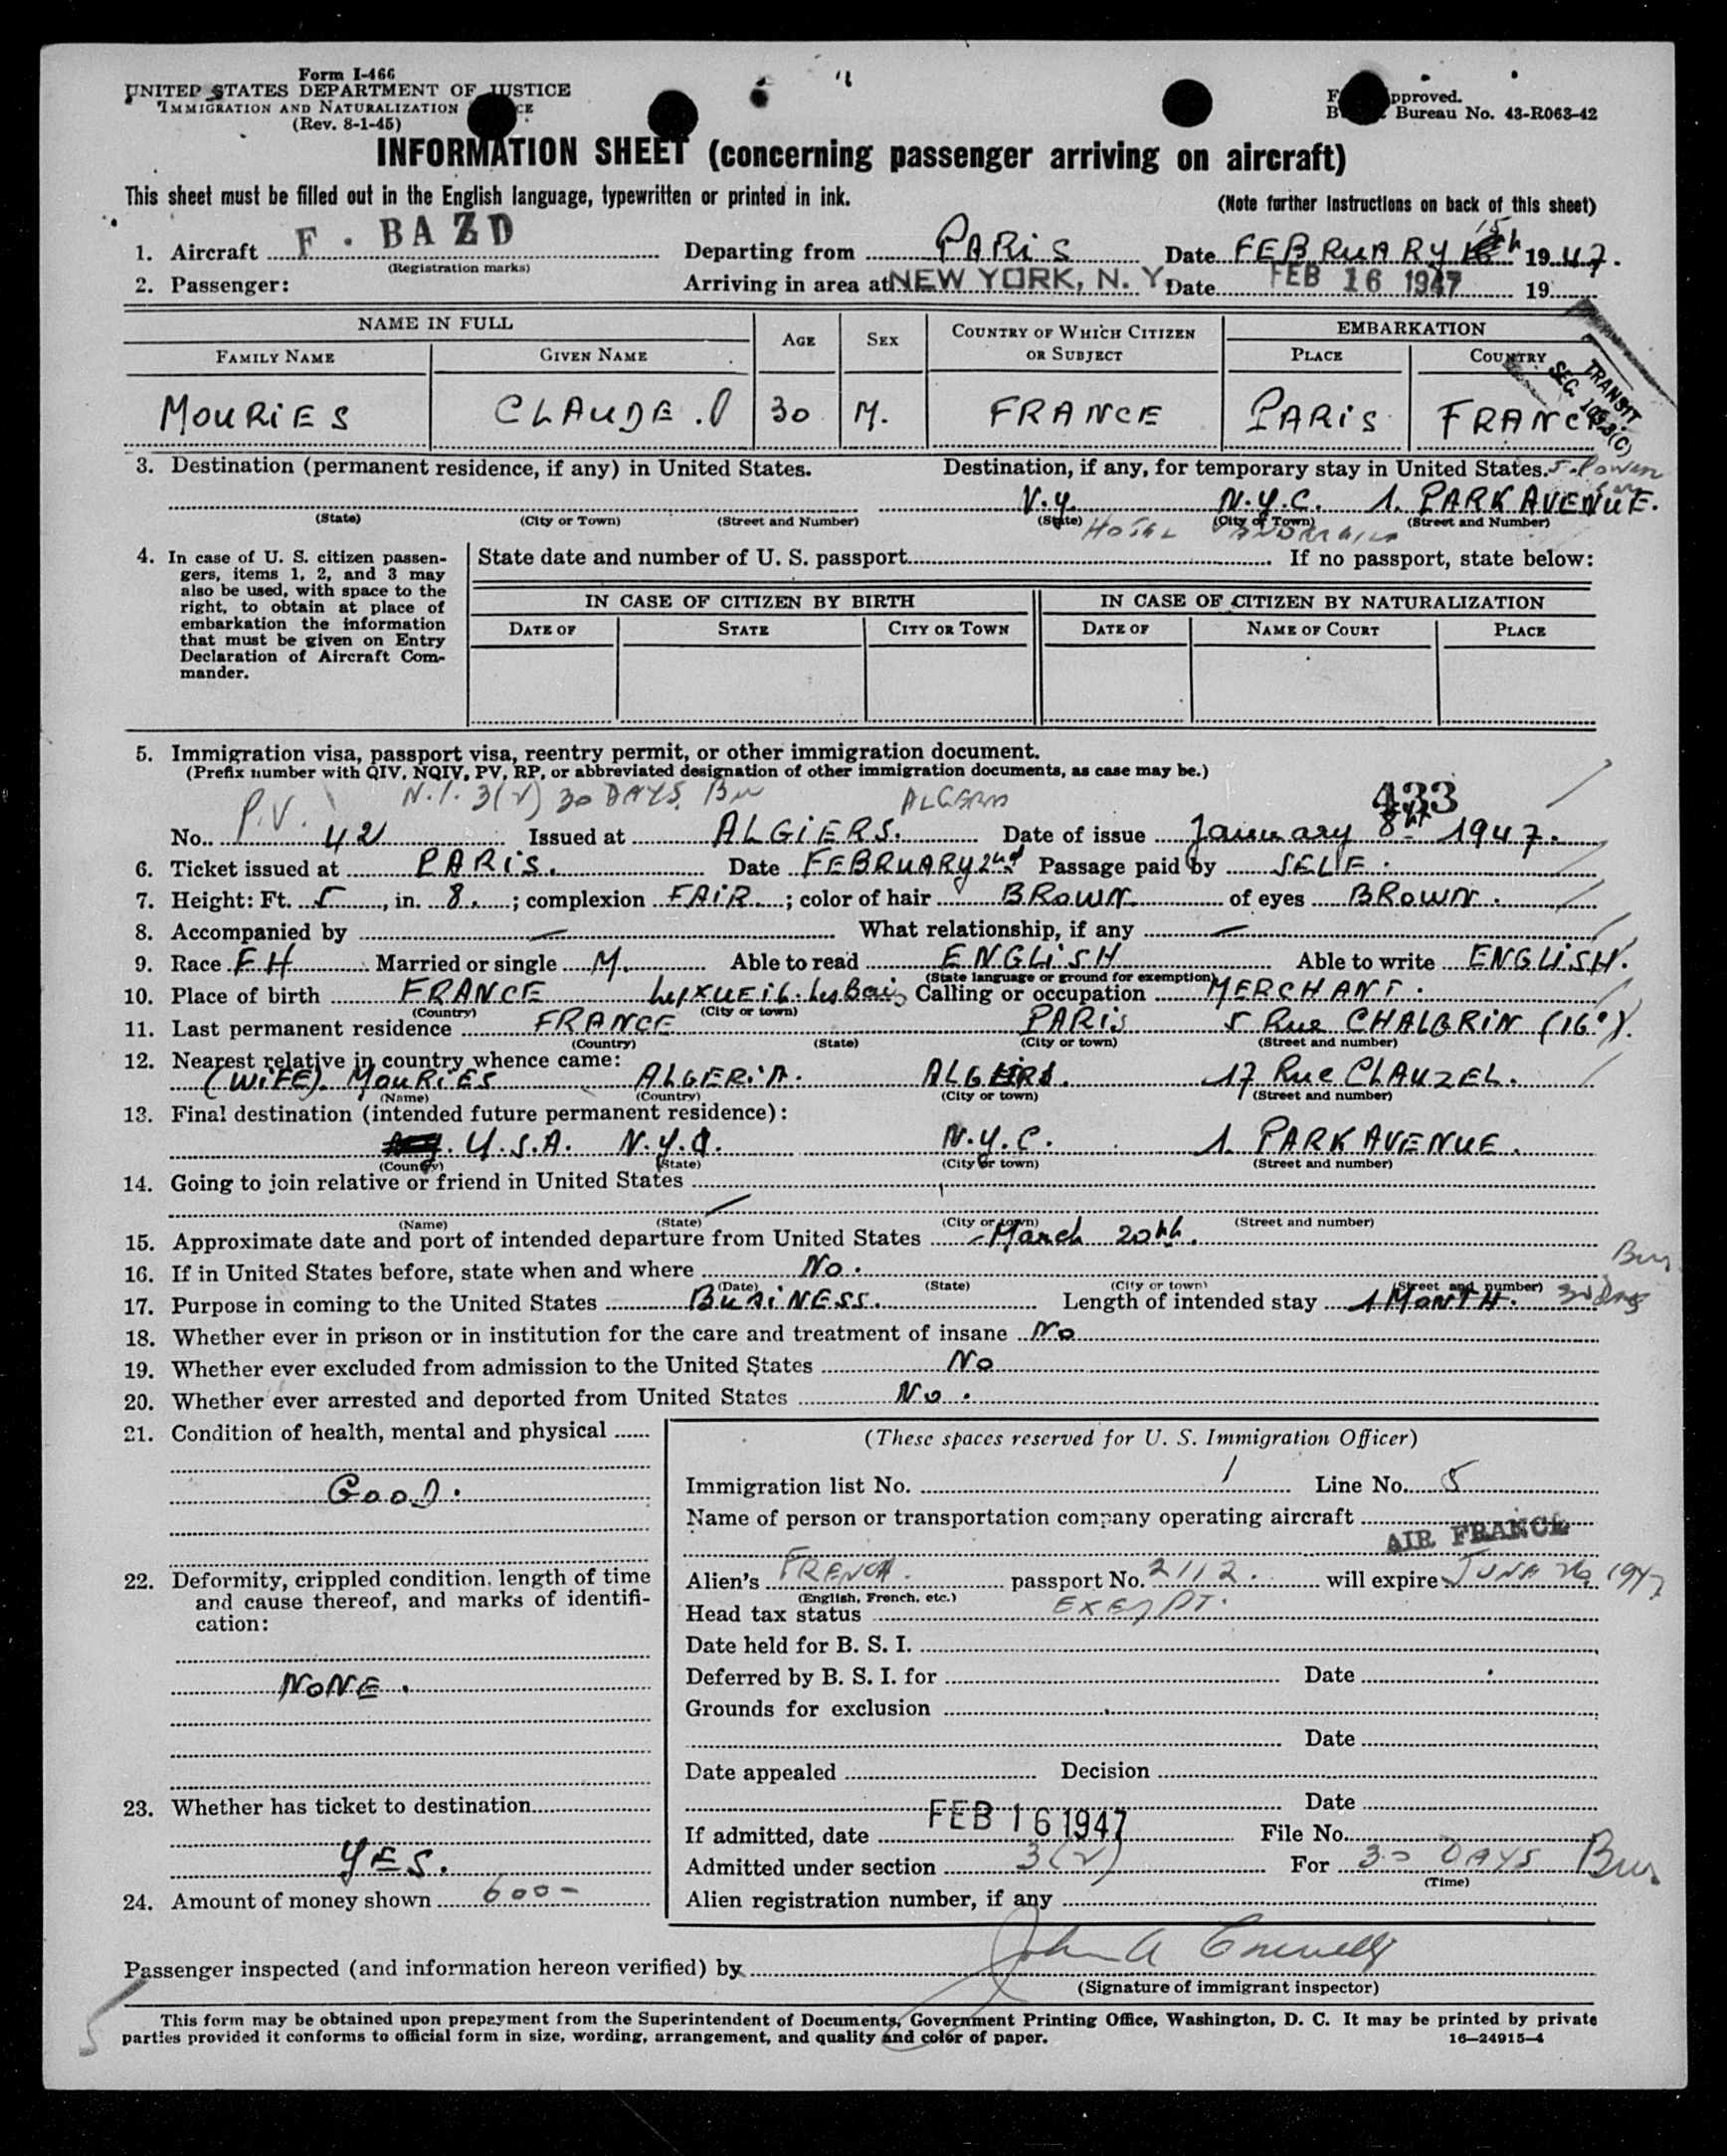 Form I-466
UNITED STATES DEPARTMENT OF JUSTICE
IMMIGRATION AND NATURALIZATION
(Rev. 8-1-45)
pproved.
Bureau No. 43-R063-42
INFORMATION SHEET (concerning passenger arriving on aircraft)
This sheet must be filled out in the English language, typewritten or printed in ink.
(Note further instructions on back of this sheet)
1. Aircraft F. BAZD Departing from PARIS Date FEBRUARY 15th 1947.
(Registration marks)
2. Passenger: Arriving in area at NEW YORK, N. Y. Date FEB 16 1947 19
NAME IN FULL AGE SEX COUNTRY OF WHICH CITIZEN OR SUBJECT EMBARKATION
FAMILY NAME GIVEN NAME PLACE COUNTRY
TRANSIT
SEC. 103.3(C)
MOURIES CLAUDE. 30 M. FRANCE PARIS FRANCE
3. Destination (permanent residence, if any) in United States. Destination, if any, for temporary stay in United States.
N.Y. N.Y.C. 1. PARK AVENUE.
(State) (City or Town) (Street and Number) (State) (City or Town) (Street and Number)
HOTEL
4. In case of U. S. citizen passengers, items 1, 2, and 3 may also be used, with space to the right, to obtain at place of embarkation the information that must be given on Entry Declaration of Aircraft Commander.
State date and number of U. S. passport If no passport, state below:
IN CASE OF CITIZEN BY BIRTH IN CASE OF CITIZEN BY NATURALIZATION
DATE OF STATE CITY OR TOWN DATE OF NAME OF COURT PLACE
5. Immigration visa, passport visa, reentry permit, or other immigration document.
(Prefix number with QIV, NQIV, PV, RP, or abbreviated designation of other immigration documents, as case may be.)
3(2) 30 DAYS. Bu 433
No. P.V. 42 Issued at ALGIERS. Date of issue January 8th 1947.
6. Ticket issued at PARIS. Date FEBRUARY 2nd Passage paid by SELF.
7. Height: Ft. 5, in. 8.; complexion FAIR.; color of hair BROWN of eyes BROWN.
8. Accompanied by — What relationship, if any —
9. Race FH Married or single M. Able to read ENGLISH Able to write ENGLISH.
(State language or ground for exemption)
10. Place of birth FRANCE Luxueil. les Bais Calling or occupation MERCHANT.
(Country) (City or town)
11. Last permanent residence FRANCE PARIS 5 Rue CHALGRIN (16e).
(Country) (State) (City or town) (Street and number)
12. Nearest relative in country whence came:
(WIFE). MOURIES ALGERIA. ALGIERS. 17 Rue CLAUZEL.
(Name) (Country) (City or town) (Street and number)
13. Final destination (intended future permanent residence):
U.S.A. N.Y.C. N.Y.C. 1. PARK AVENUE.
(Country) (State) (City or town) (Street and number)
14. Going to join relative or friend in United States
(Name) (State) (City or town) (Street and number)
15. Approximate date and port of intended departure from United States March 20th.
16. If in United States before, state when and where No.
Bus
(Date) (State) (City or town) (Street and number)
17. Purpose in coming to the United States BUSINESS. Length of intended stay 1 MONTH. 30 days
18. Whether ever in prison or in institution for the care and treatment of insane No
19. Whether ever excluded from admission to the United States No
20. Whether ever arrested and deported from United States No.
21. Condition of health, mental and physical
GOOD.
22. Deformity, crippled condition, length of time and cause thereof, and marks of identification:
NONE.
23. Whether has ticket to destination
YES.
24. Amount of money shown 600-
(These spaces reserved for U. S. Immigration Officer)
Immigration list No. 1 Line No. 5
Name of person or transportation company operating aircraft
AIR FRANCE
Alien's FRENCH. passport No. 2112. will expire JUNE 26 1947
(English, French, etc.)
Head tax status EXEMPT.
Date held for B. S. I.
Deferred by B. S. I. for Date
Grounds for exclusion
Date
Date appealed Decision
Date
If admitted, date FEB 16 1947 File No.
Admitted under section 3(2) For 30 DAYS Bus.
(Time)
Alien registration number, if any
Passenger inspected (and information hereon verified) by John A Connelly
(Signature of immigrant inspector)
5
This form may be obtained upon prepayment from the Superintendent of Documents, Government Printing Office, Washington, D. C. It may be printed by private
parties provided it conforms to official form in size, wording, arrangement, and quality and color of paper. 16—24915-4